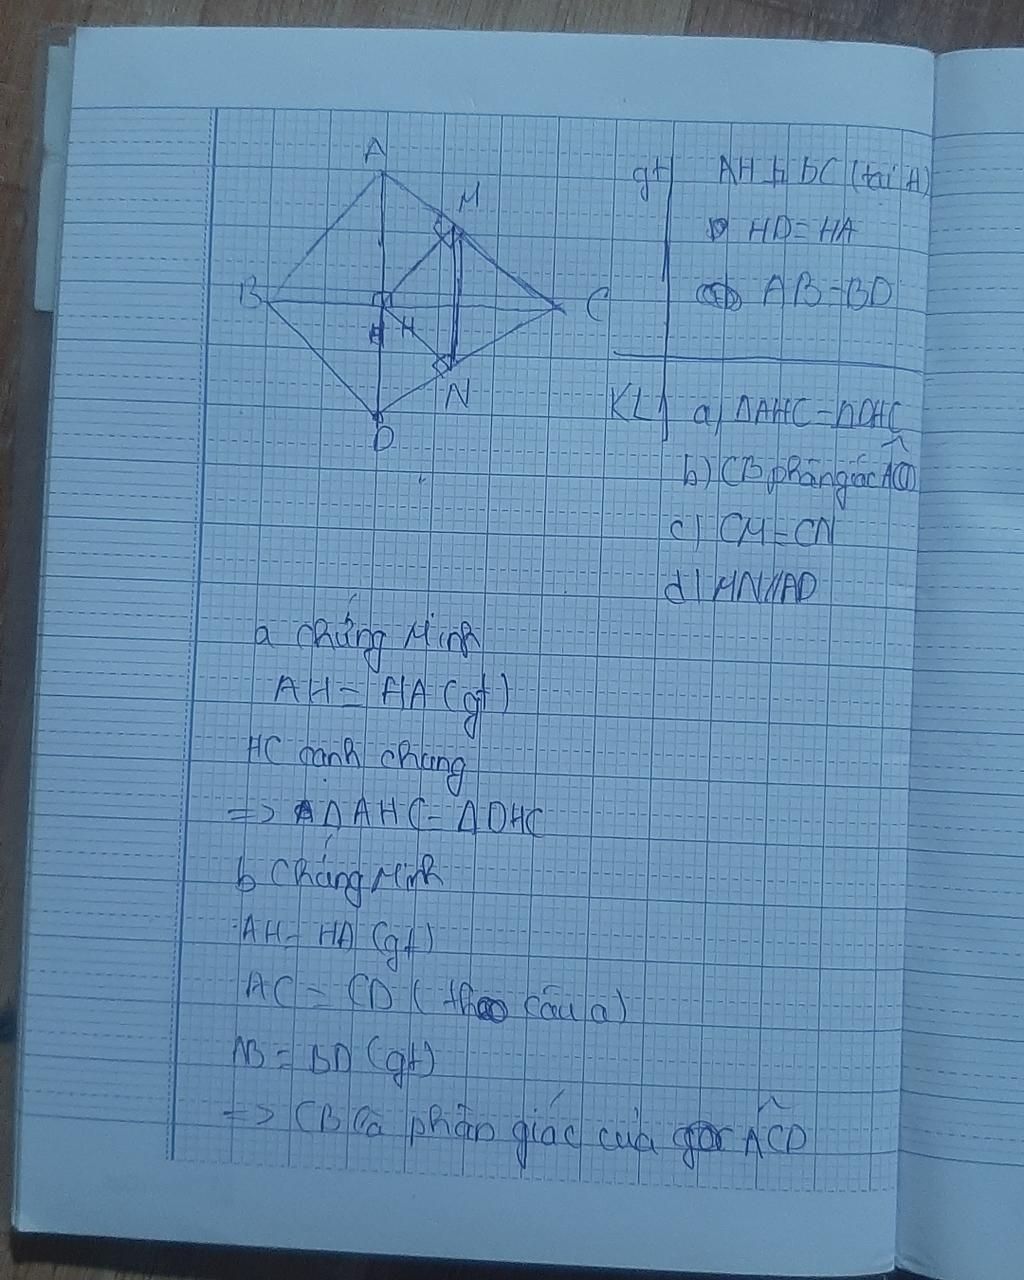 A
M
B
C
H
N
D
gt
AH ⊥ BC (tại H)
HD = HA
AB = BD
KL
a) ΔAHC = ΔDHC
b) CB phân giác ACD
c) CM = CN
d) MN // AD
a chứng Minh
AH = HA (gt)
HC cạnh chung
=> Δ AHC = ΔDHC
b Chứng Minh
AH = HA (gt)
AC = CD (theo câu a)
AB = BD (gt)
=> CB là phân giác của góc ACD